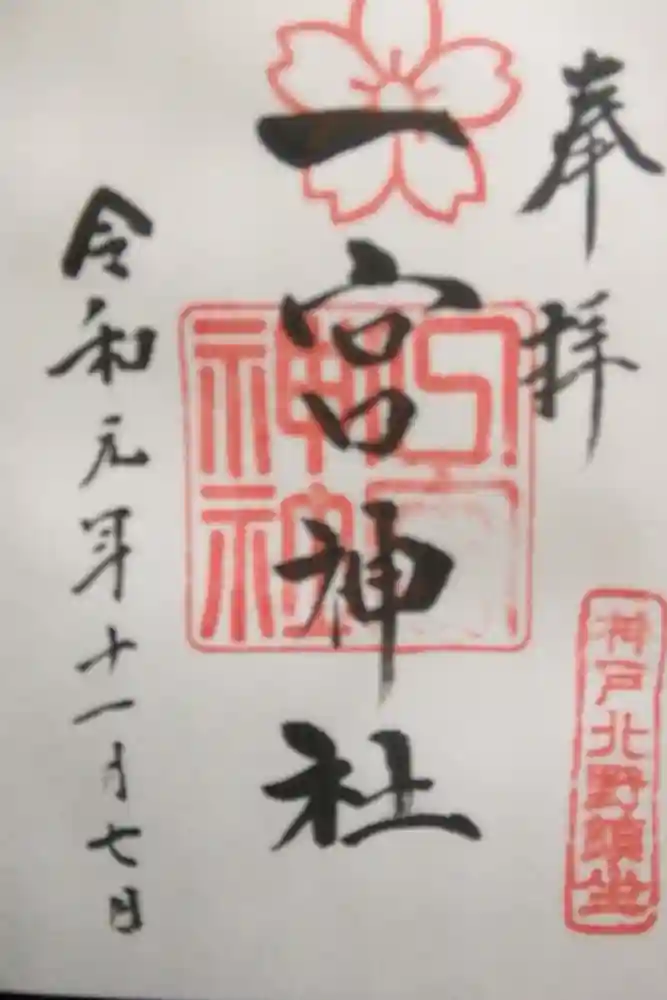 奉拝
神戸北野鎮坐
一宮神社
令和元年十一月七日